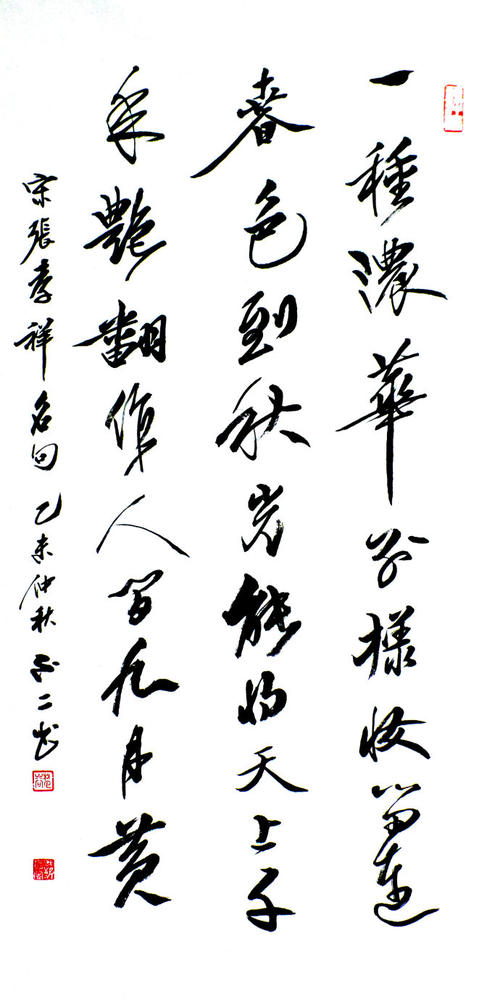 一種濃華別樣妝留連
春色到秋光能將天上千
年艷翻作人間九月黃
宋張孝祥名句 乙未仲秋